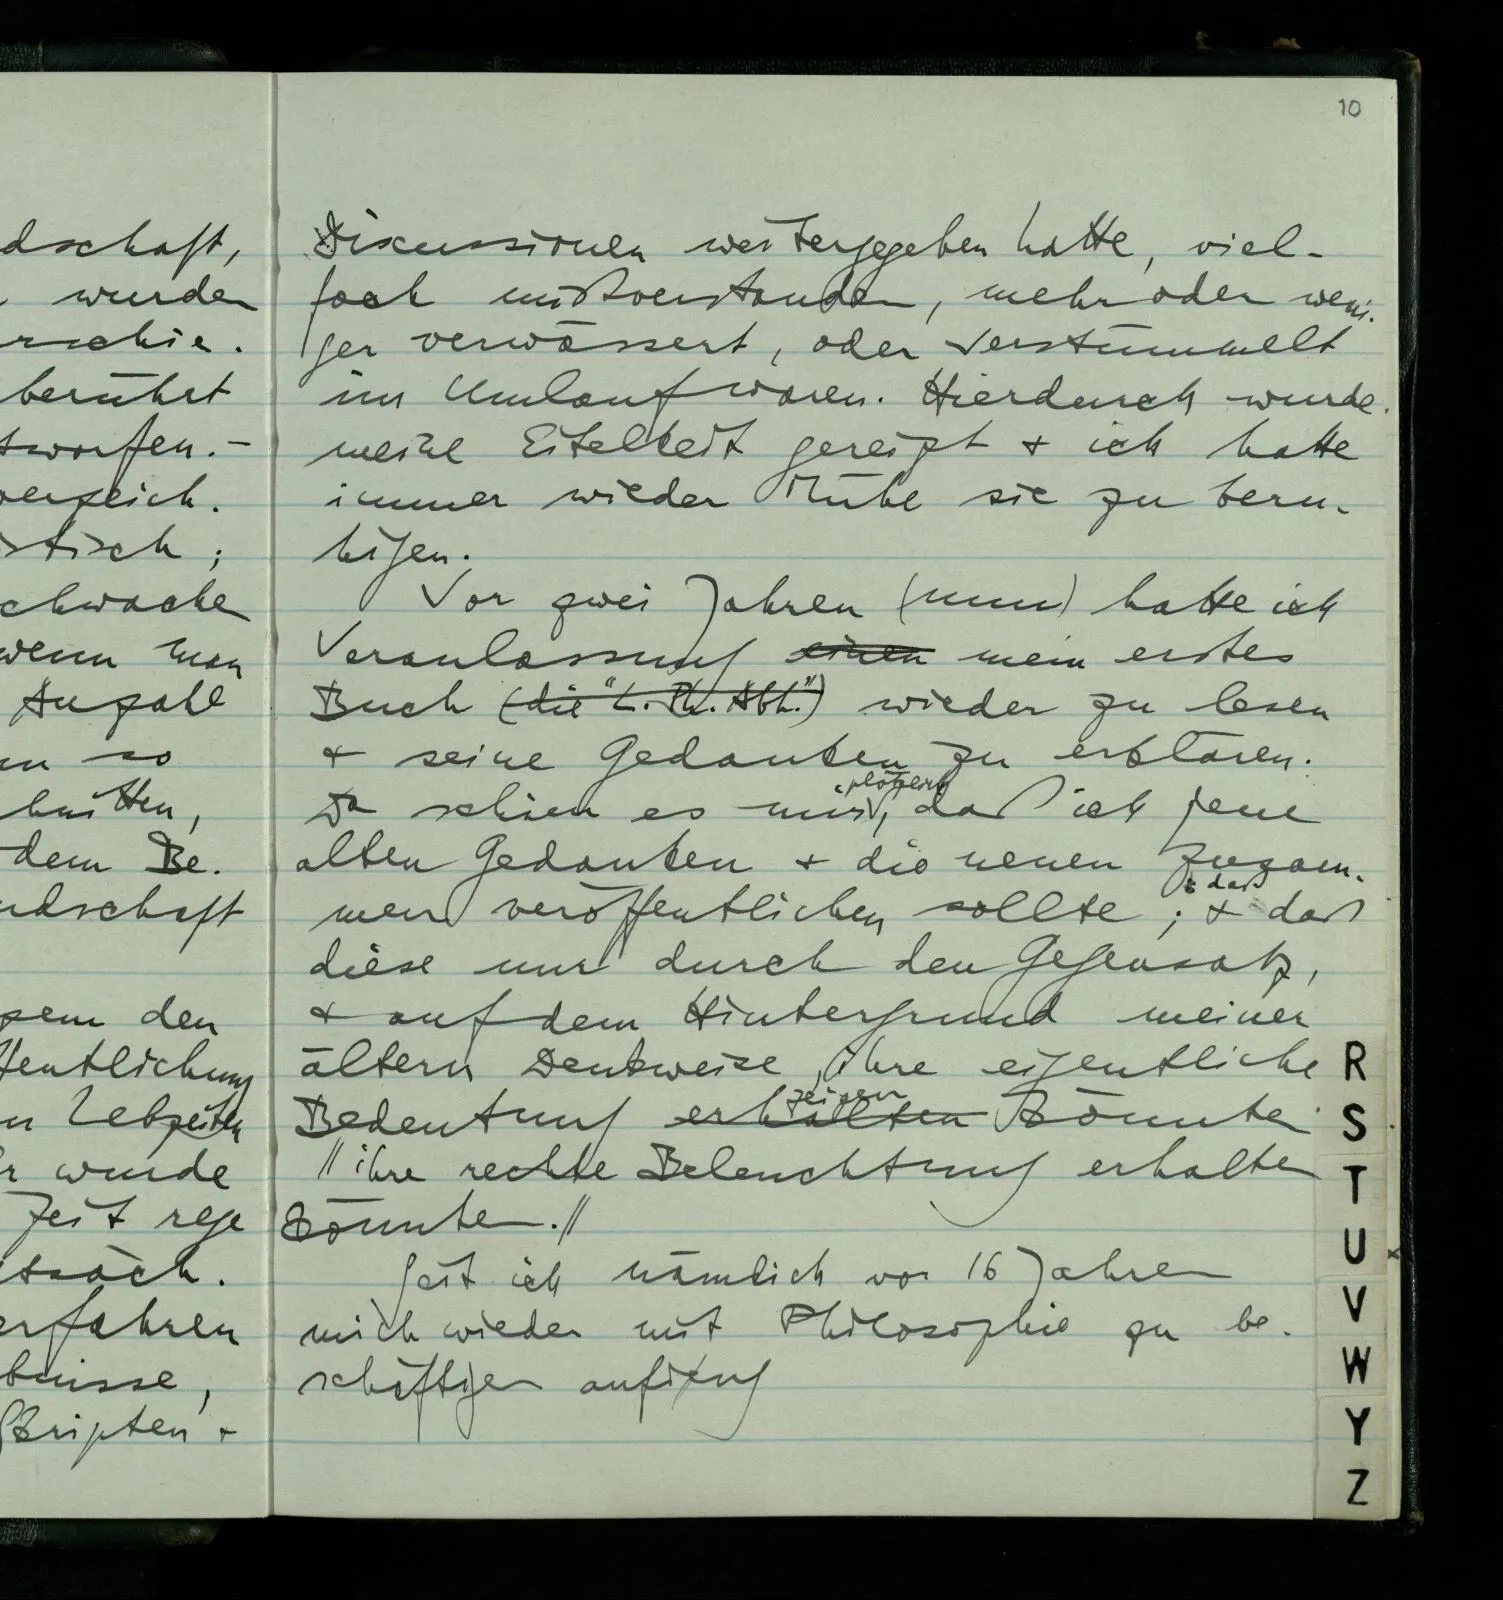 10
dschaft,
wurden
rschie.
berührt
tworfen. –
vergleich.
istisch;
schwache
wenn man
Anzahl
en so
hnitten,
dem Be.
ndschaft
gem den
ffentlichung
n Lebzeiten
r wurde
Zeit rege
tsäch.
erfahren
bnisse,
skripten +
Discussionen weitergegeben hatte, viel-
fach mißverstanden, mehr oder weni-
ger verwässert, oder verstümmelt
im Umlauf waren. Hierdurch wurde
meine Eitelkeit gereizt + ich hatte
immer wieder Mühe sie zu beru-
higen.
Vor zwei Jahren (nun) hatte ich
Veranlassung einen mein erstes
Buch (die "L. Ph. Abh.") wieder zu lesen
+ seine Gedanken zu erklären.
plötzlich
Da schien es mir, daß ich jene
alten Gedanken + die neuen zusam-
: daß
men veröffentlichen sollte; + daß
diese nur durch den Gegensatz,
+ auf dem Hintergrund meiner
ältern Denkweise, ihre eigentliche
zeigen
Bedeutung erhalten könnten
// ihre rechte Beleuchtung erhalten
könnten. //
Seit ich nämlich vor 16 Jahren
mich wieder mit Philosophie zu be-
schäftigen anfing
R
S
T
U
V
W
Y
Z